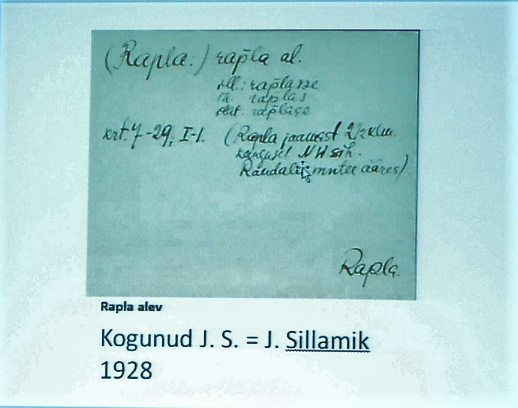 (Rapla:) rap̄la al.
ill.: rap̄lasse
rap̄las
rap̄lase
krt. 7-29; I-1. (Rapla jaamast 2½ klm.
kaugusel NW sih.
Raudalu mntee ääres)
Rapla.
Rapla alev
Kogunud J. S. = J. Sillamik
1928